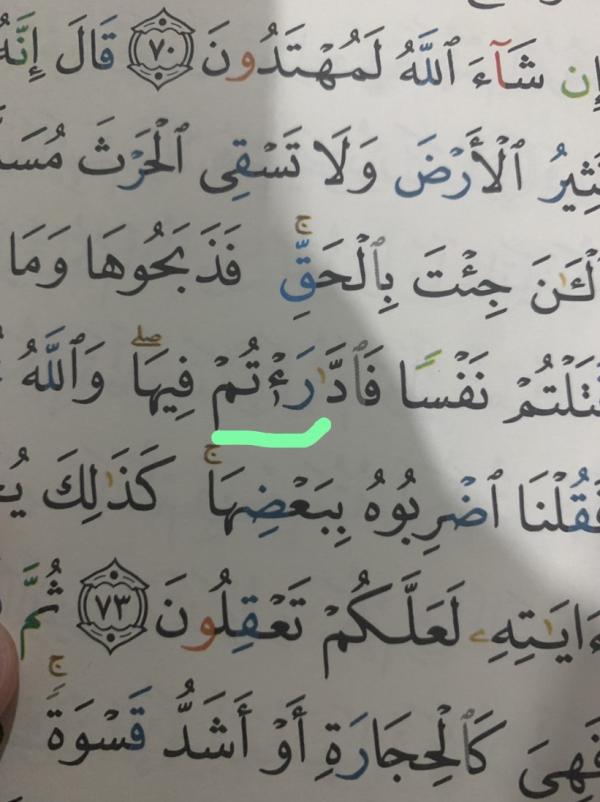 إِن شَآءَ ٱللَّهُ لَمُهۡتَدُونَ ٧٠ قَالَ إِنَّهُ
ٱلۡأَرۡضَ وَلَا تَسۡقِى ٱلۡحَرۡثَ
جِئۡتَ بِٱلۡحَقِّۚ فَذَبَحُوهَا وَمَا
نَفۡسٗا فَٱدَّٰرَٰٔتُمۡ فِيهَاۖ وَٱللَّهُ
فَقُلۡنَا ٱضۡرِبُوهُ بِبَعۡضِهَاۚ كَذَٰلِكَ
ءَايَٰتِهِۦ لَعَلَّكُمۡ تَعۡقِلُونَ ٧٣ ثُمَّ
فَهِىَ كَٱلۡحِجَارَةِ أَوۡ أَشَدُّ قَسۡوَةٗۚ